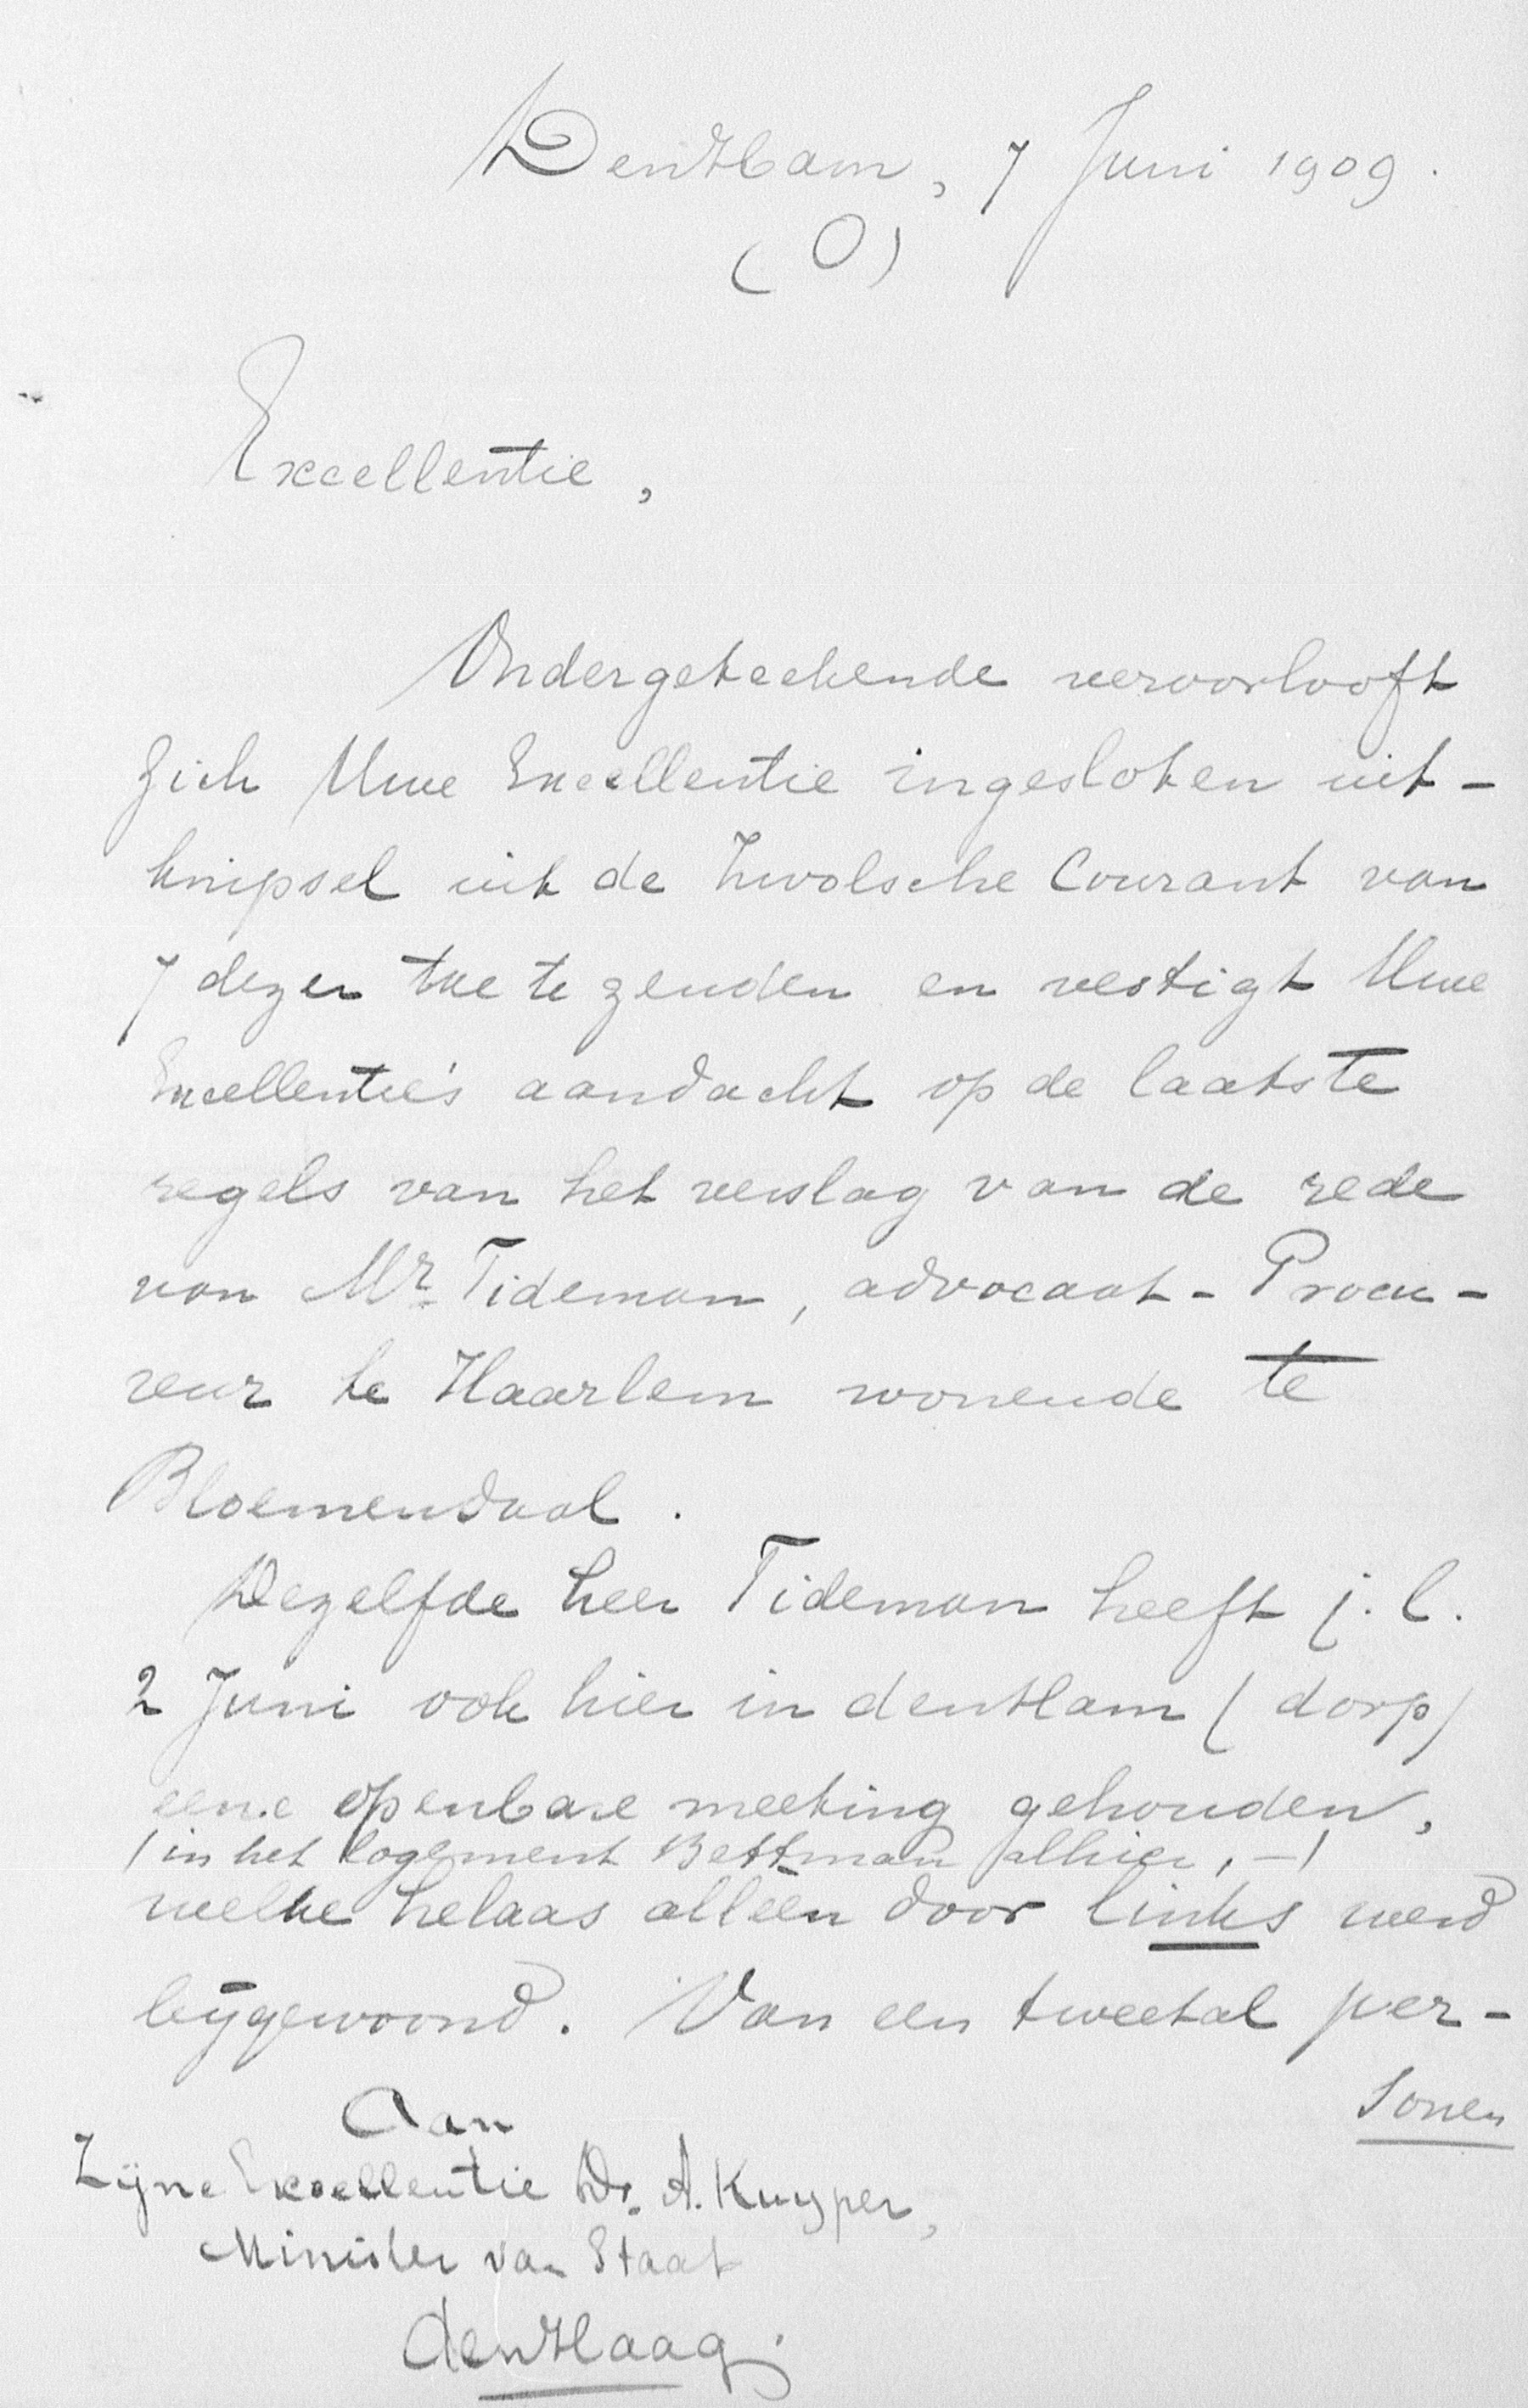 DenHam, 7 Juni 1909.
(O)
Excellentie,
Ondergeteekende veroorlooft
zich Uwe Excellentie ingesloten uit-
knipsel uit de Zwolsche Courant van
7 dezer toe te zenden en vestigt Uwe
Excellentie's aandacht op de laatste
regels van het verslag van de rede
van Mr. Tideman, advocaat-Procu-
reur te Haarlem wonende te
Bloemendaal.
Dezelfde heer Tideman heeft j.l.
2 Juni ook hier in denHam (dorp)
eene openbare meeting gehouden,
(in het logement Bettman alhier, -)
welke helaas alléén door links werd
bijgewoond. Van een tweetal per-
sonen
Aan
Zijne Excellentie Dr. A. Kuyper,
Minister van Staat
denHaag.